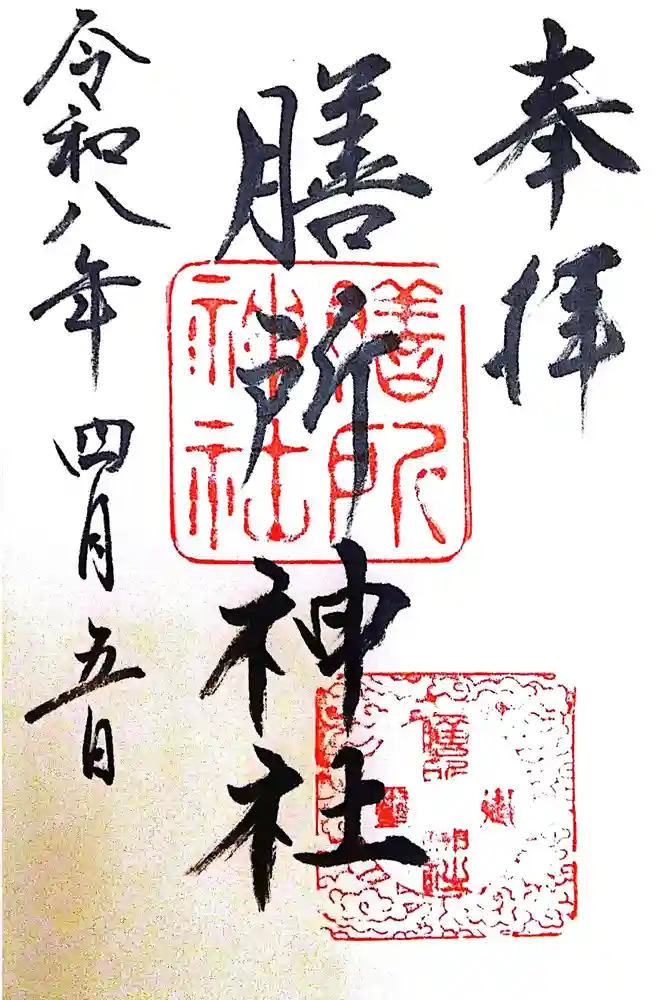 奉拝
膳所神社
膳所
神社
令和八年四月五日